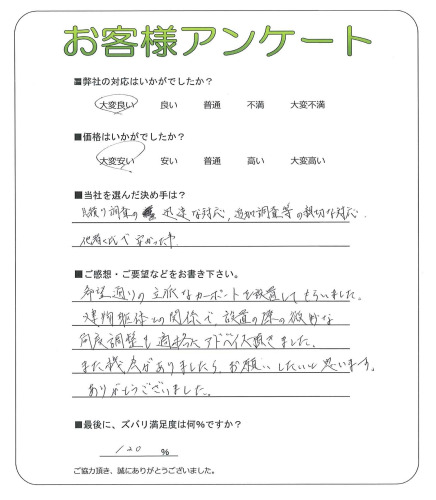 お客様アンケート
■弊社の対応はいかがでしたか？
大変良い 良い 普通 不満 大変不満
■価格はいかがでしたか？
大変安い 安い 普通 高い 大変高い
■当社を選んだ決め手は？
見積り調査の 迅速な対応、追加調査等の親切な対応.
他者と比べ安かった事
■ご感想・ご要望などをお書き下さい。
希望通りの立派なカーポートを設置してもらいました。
建物躯体との関係で、設置の際の微妙な
角度調整も適切にアドバイス頂きました。
また機会がありましたら、お願いしたいと思います。
ありがとうございました。
■最後に、ズバリ満足度は何%ですか？
120 %
ご協力頂き、誠にありがとうございました。